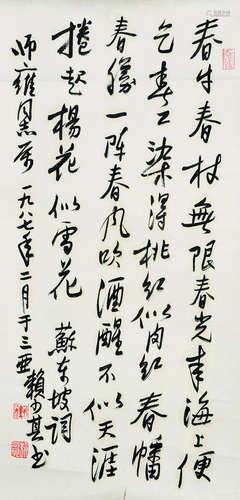 春牛春杖無限春光来海上便
乞春工染得桃紅似肉紅春幡
春勝一陣春风吹酒醒不似天涯
捲起楊花似雪花 蘇东坡詞
師雍同志属 一九八七年二月于三亞 賴少其书